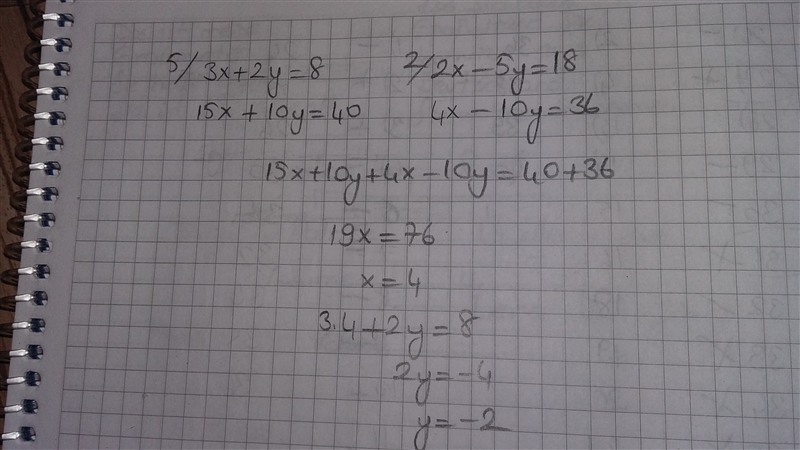 5/ 3x+2y=8 2/ 2x-5y=18
15x+10y=40 4x-10y=36
15x+10y+4x-10y=40+36
19x=76
x=4
3.4+2y=8
2y=-4
y=-2